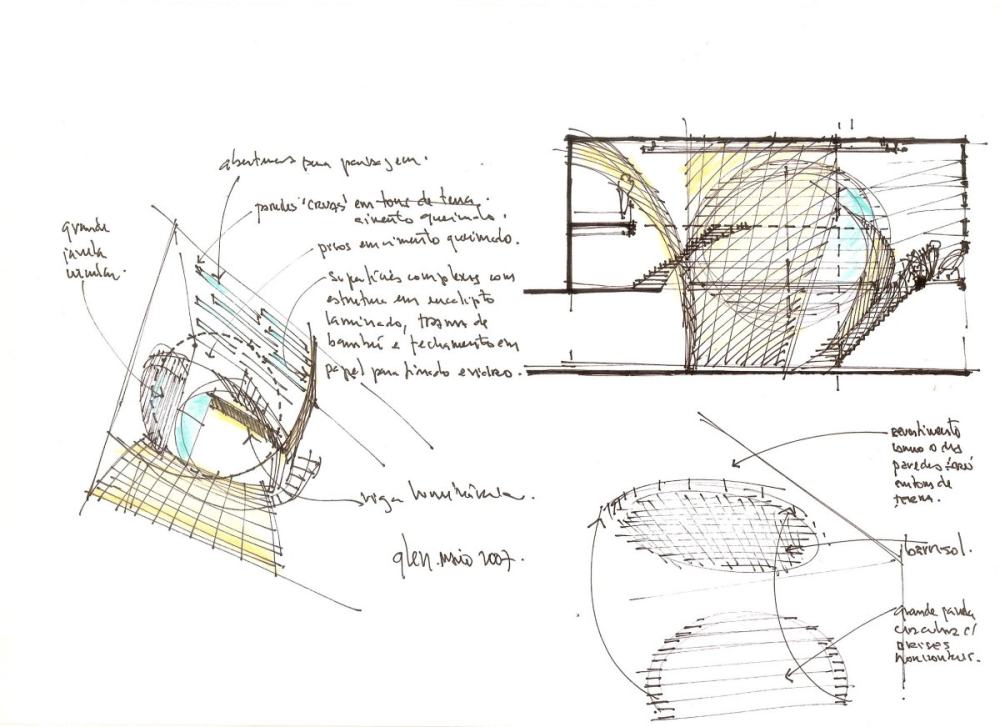 aberturas para paisagem.
paredes 'CRUAS' em tons de terra.
cimento queimado.
pisos em cimento queimado.
grande
janela
circular.
superfícies complexas com
estrutura em eucalipto
laminado, trama de
bambú e fechamento em
papel parafinado e vidro.
viga
glen. maio 2007.
revestimento
como o das
paredes
em tons de
terra.
barra-sol.
grande janela
circular c/
brises
horizontais.